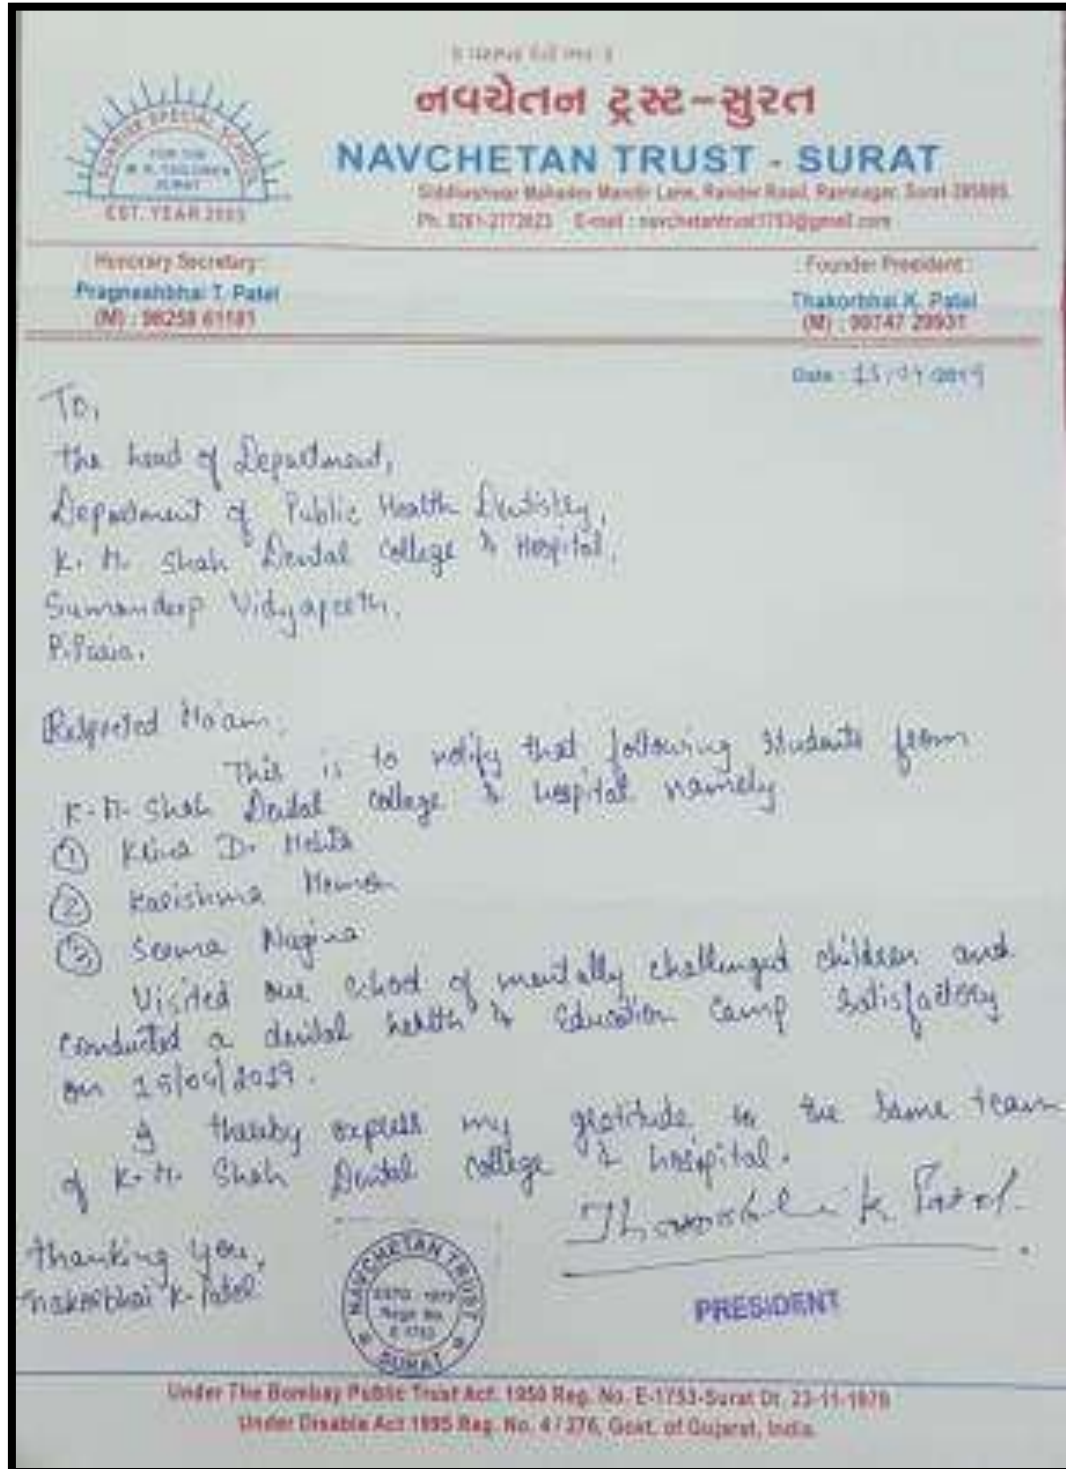 નવચેતન ટ્રસ્ટ-સુરત
NAVCHETAN TRUST - SURAT
SUNRISE SPECIAL SCHOOL
FOR THE
M. R. CHILDREN
SURAT
EST. YEAR 2003
Siddheshwar Mahadev Mandir Lane, Rander Road, Ramnagar, Surat-395005.
Ph. 0261-2772623 E-mail : navchetantrust1753@gmail.com
: Honorary Secretary :
Pragneshbhai T. Patel
(M) : 98258 61181
: Founder President :
Thakorbhai K. Patel
(M) : 99747 29931
Date : 15/04/2019
To,
the head of Department,
Department of Public Health Dentistry,
K. M. Shah Dental College & Hospital,
Sumandeep Vidyapeeth,
Piparia.
Respected Ma'am,
This is to notify that following students from
K. M. Shah Dental College & hospital namely
① D. Mehta
② Karishma
③ Nagina
Visited our school of mentally challenged children and
conducted a dental health & Education Camp Satisfactory
on 15/04/2019.
I thereby express my gratitude to the same team
of K. M. Shah Dental College & hospital.
Thakorbhai K. Patel.
Thanking you,
Thakorbhai K. Patel
NAVCHETAN TRUST
ESTD. 1979
Regn No.
E 1753
SURAT
PRESIDENT
Under The Bombay Public Trust Act. 1950 Reg. No. E-1753-Surat Dt. 23-11-1979
Under Disable Act 1995 Reg. No. 4 / 276, Govt. of Gujarat, India.